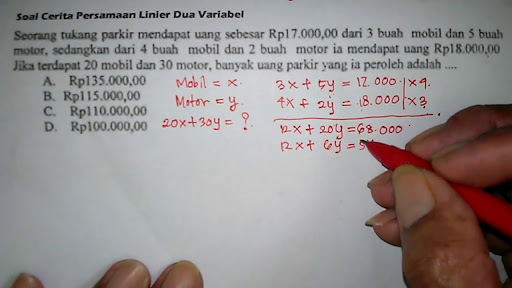 Soal Cerita Persamaan Linier Dua Variabel
Seorang tukang parkir mendapat uang sebesar Rp17.000,00 dari 3 buah mobil dan 5 buah
motor, sedangkan dari 4 buah mobil dan 2 buah motor ia mendapat uang Rp18.000,00
Jika terdapat 20 mobil dan 30 motor, banyak uang parkir yang ia peroleh adalah ....
A. Rp135.000,00
B. Rp115.000,00
C. Rp110.000,00
D. Rp100.000,00
Mobil = x.
Motor = y.
20x+30y = ?
3x + 5y = 17.000 | x4.
4x + 2y = 18.000 | x3
12x + 20y = 68.000
12x + 6y = 5